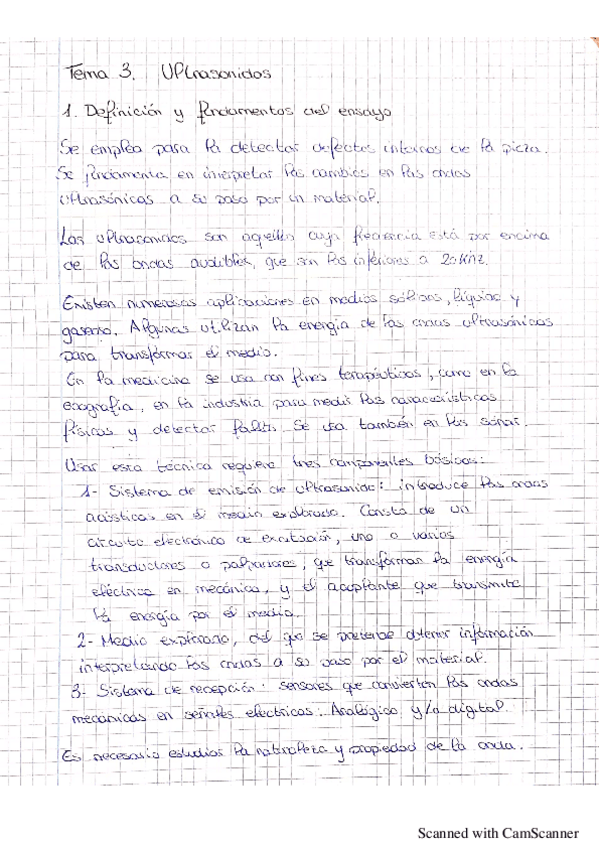 Tema 3. Ultrasonidos
1. Definición y fundamentos del ensayo
Se emplea para la detectar defectos internos de la pieza.
Se fundamenta en interpretar los cambios en las ondas
ultrasónicas a su paso por un material.
Los ultrasonidos son aquellos cuya frecuencia está por encima
de las ondas audibles, que son las inferiores a 20kHz.
Existen numerosas aplicaciones en medios sólidos, líquidos y
gaseoso. Algunas utilizan la energía de las ondas ultrasónicas
para transformar el medio.
En la medicina se usa con fines terapéuticos, como en la
ecografía, en la industria para medir las características
físicas y detectar fallos. Se usa también en los sonar.
Usar esta técnica requiere tres componentes básicos:
1- Sistema de emisión de ultrasonido: introduce las ondas
acústicas en el medio explorado. Consta de un
circuito electrónico de excitación, uno o varios
transductores o palpadores, que transforman la energía
eléctrica en mecánica, y el acoplante que transmite
la energía por el medio.
2- Medio explorado, del que se pretende obtener información
interpretando las ondas a su paso por el material.
3- Sistema de recepción: sensores que convierten las ondas
mecánicas en señales eléctricas. Analógico y/o digital.
Es necesario estudiar la naturaleza y propiedad de la onda.
Scanned with CamScanner